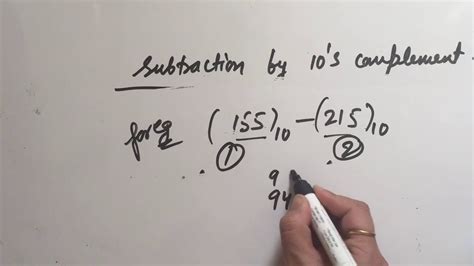 subtraction by 10's complement.
for eg (155)10 - (215)10
1 2
9
94